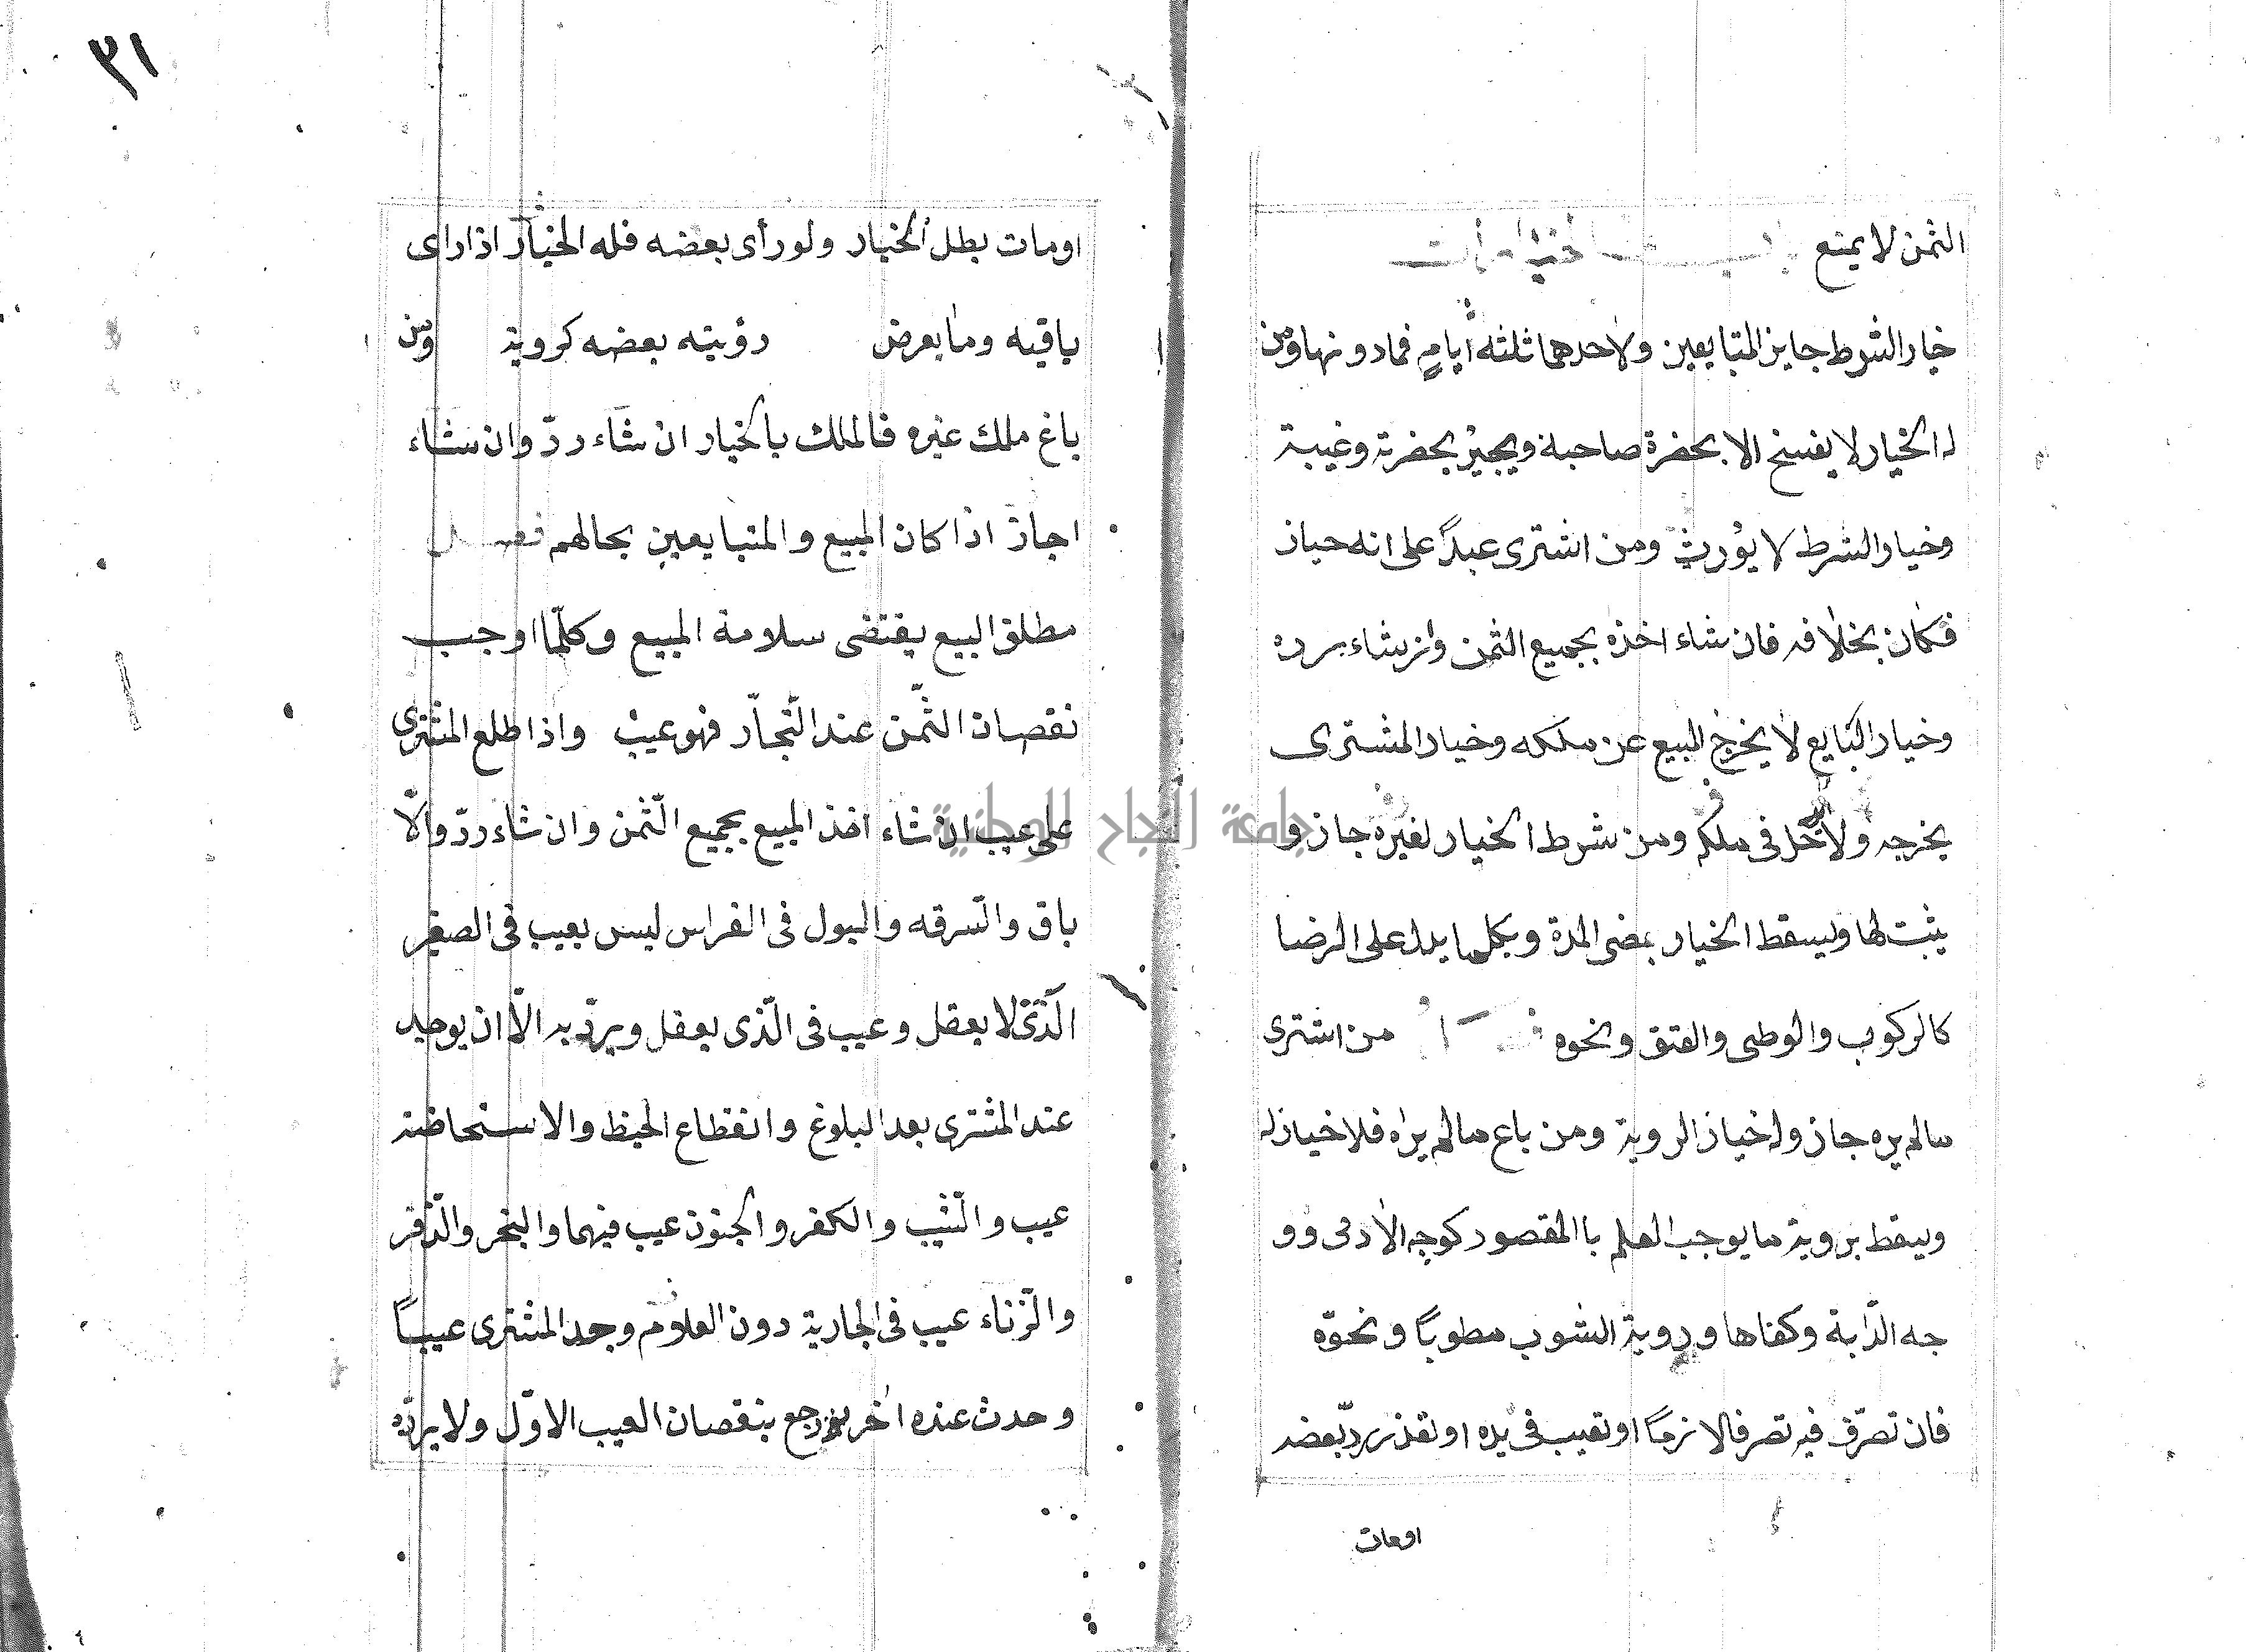 الثمن لا يمنع باب الخيارات
خيار الشرط جايز المتبايعين ولاحدهما ثلثه ايامٍ فمادونها ومن
له الخيار لا يفسخ الا بحضرة صاحبة ويجيز بحضرته وغيبة
وخيار الشرط لا يؤرث ومن اشترى عبداً على انه حباز
فكان بخلافه فان شاء اخذه بجميع الثمن وان شاء رده
وخيار البايع لا يخرج المبيع عن ملكه وخيار المشترى
يخرجه ولا فى ملكه ومن شرط الخيار لغيره جاز و
يثبت لها ويسقط الخيار بمضى المدة وبكل ما يدل على الرضا
كالركوب والوطى والعتق ونحوه من اشترى
مالم يره جاز وله خياز الروية ومن باع مالم يراه فلا خيازله
ويسقط بروية ما يوجب العلم باالمقصود كوجه الادمى وو
جه الدّابة وكفاها ورويه الشوب مطوياً ونحوّه
فان تصرّف فيه تصرفا لازماً او تعيب فى يده او تعذر ردّ بعضه
اومات
٣١
اومات بطل الخيار ولو رأى بعضه فله الخيار اذا راى
ياقيه وما يعرض رؤيته بعضه كرويه ومن
باغ ملك غيره فالملك بالخيار ان شاء ردّ وان شاء
اجاز اذا كان المبيع والمتبايعين بحالهم فصل
مطلق البيع يقتضى سلامة المبيع وكلّما اوجب
نقصان الثّمن عند التّجاّر فهو عيب واذا طلع المشترى
على عيب ان شاء اخذ المبيع بجميع الثّمن وان شاء ردّ والّا
باق والسّرقه والبول فى الفراس ليس بعيب فى الصغير
الّذى لا يعقل وعيب فى الّذى يعقل ويردّ به الّا ان يوجد
عند المشترى بعد البلوغ وانقطاع الحيظ والاستحاضته
عيب والثّيب والكفر والجنون عيب فيهما والبخر والدّفر
والزّناء عيب فى الجارية دون الغلام وجد المشترى عيباً
وحدث عنده اخر يرجع بنقصان العيب الاوّل ولا يردّه
جامعة النجاح الوطنية